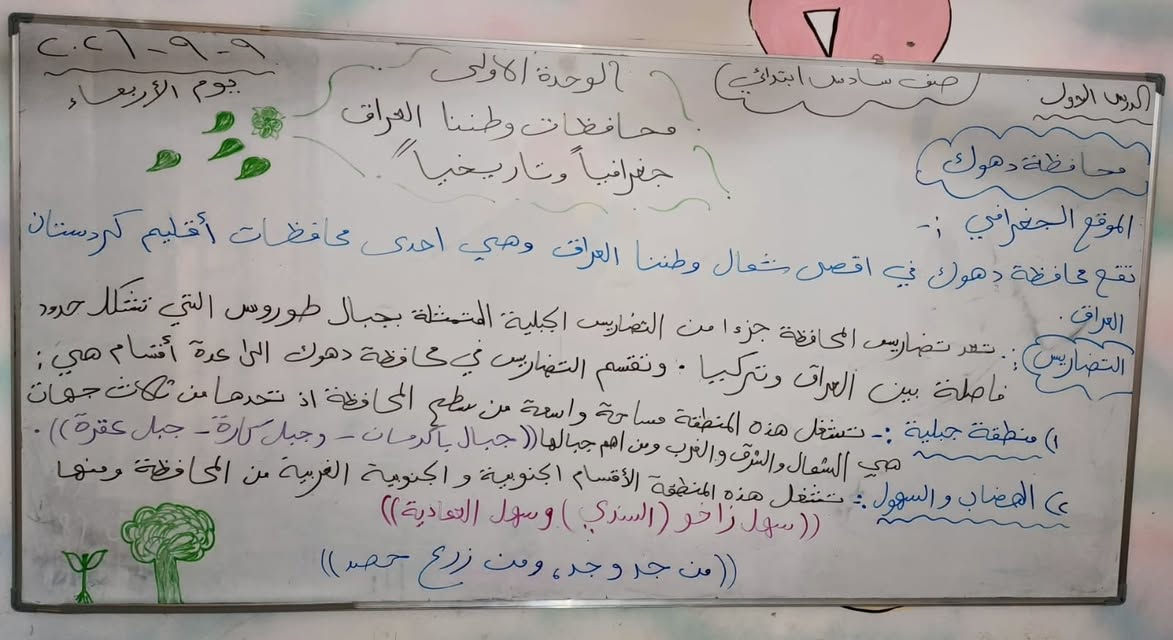 الدرس الاول
صف سادس ابتدائي
الوحدة الاولى
محافظات وطننا العراق
جغرافياً وتاريخياً
٩-٩-٢٠٢٦
يوم الأربعاء
محافظة دهوك
الموقع الجغرافي :-
تقع محافظة دهوك في اقصى شمال وطننا العراق وهي احدى محافظات أقليم كردستان
العراق.
التضاريس : تعد تضاريس المحافظة جزءا من التضاريس الجبلية المتمثلة بجبال طوروس التي تشكل حدود
فاصلة بين العراق وتركيا . وتقسم التضاريس في محافظة دهوك الى عدة أقسام هي :
١) منطقة جبلية :- تشغل هذه المنطقة مساحة واسعة من سطح المحافظة اذ تحدها من ثلاث جهات
هي الشمال والشرق والغرب ومن اهم جبالها ((جبال باكرمان - وجبل كارة - جبل عقرة)).
٢) الهضاب والسهول :- تشغل هذه المنطقة الأقسام الجنوبية و الجنوبية الغربية من المحافظة ومنها
((سهل زاخو (السندي) وسهل العمادية))
((من جد وجد، ومن زرع حصد))